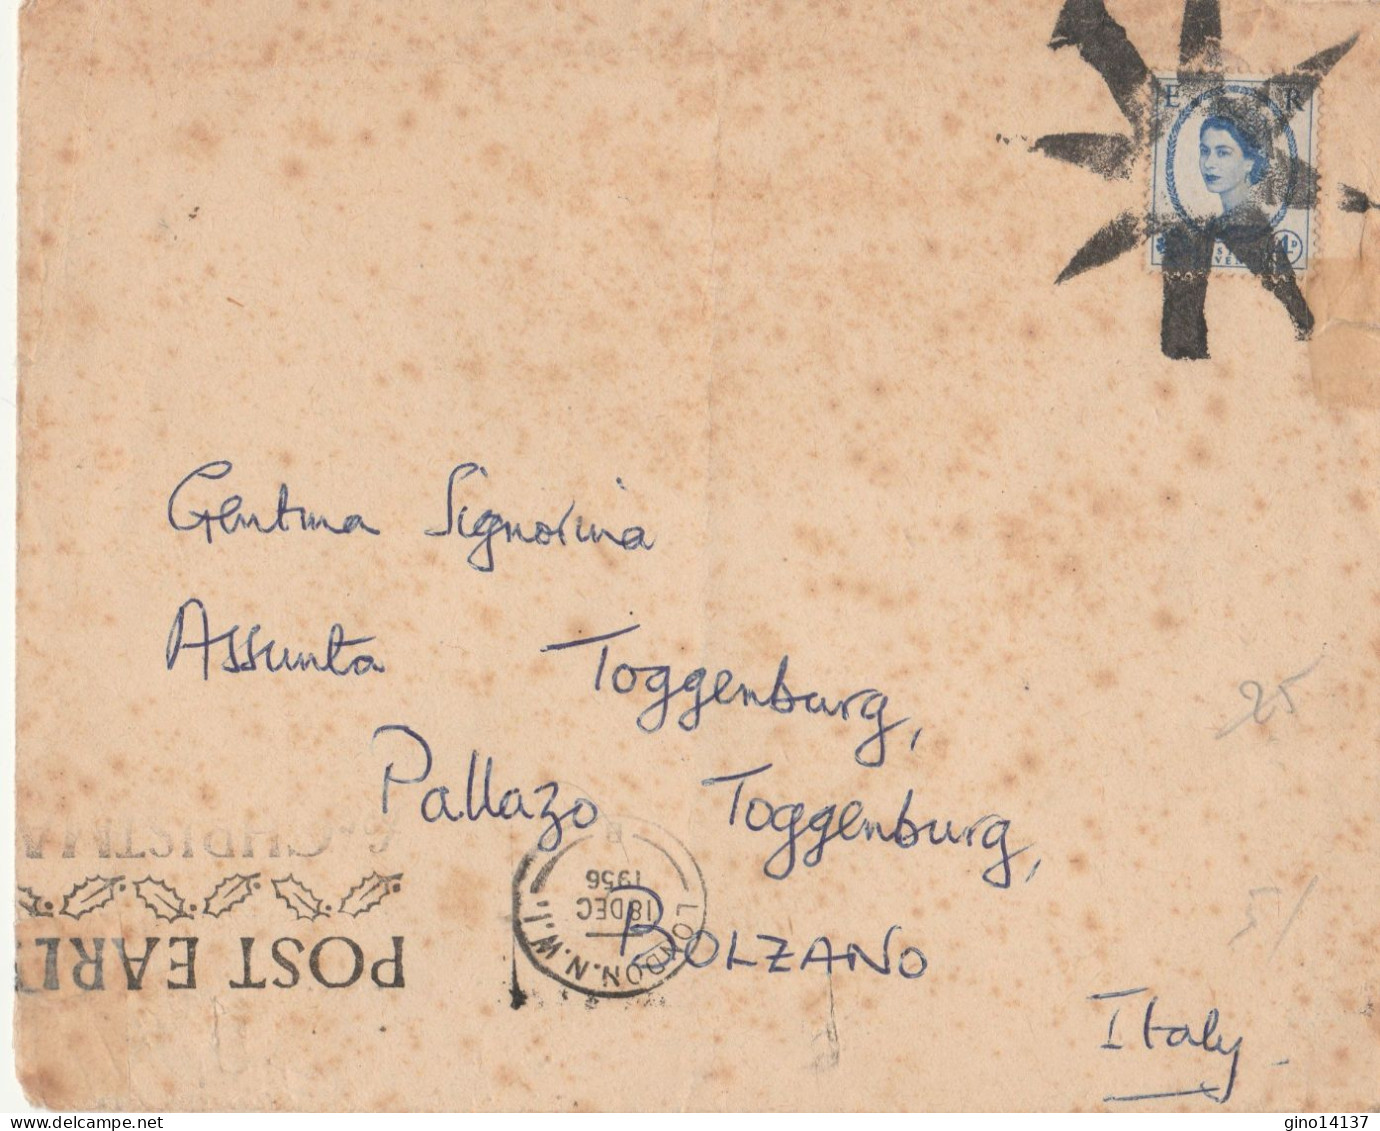 E R
4D
Gentma Signorina
Assunta Toggenburg,
Pallazo Toggenburg,
BOLZANO
Italy.
25
5/
LONDON.N.W.1.
18 DEC
1956
POST EARLY
CHRISTMA
gino14137